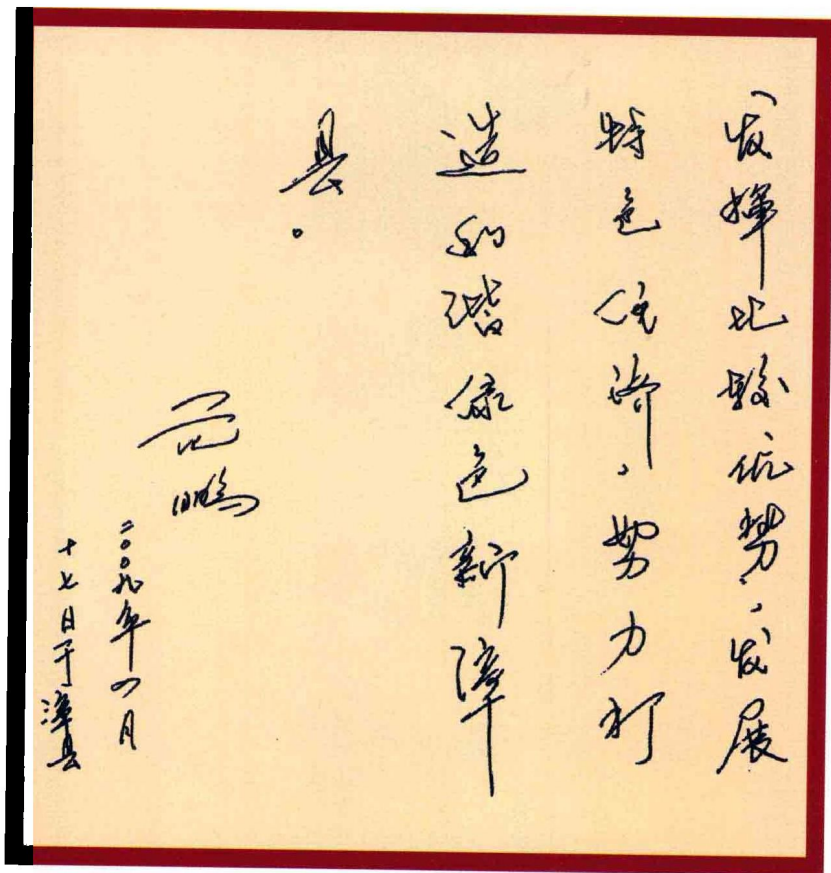 发挥比较优势，发展
特色经济，努力打
造和谐绿色新漳
县。
范鹏
二〇〇九年四月
十七日于漳县